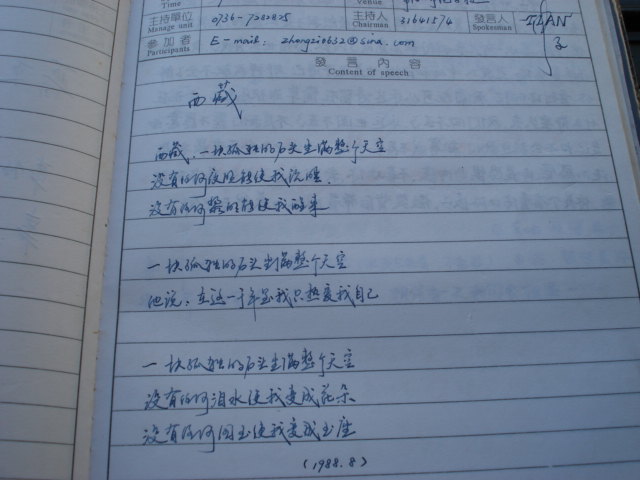 Time Venue
主持單位 0736-7282825 主持人 31641574 發言人
Manage unit Chairman Spokesman
參加者 E-mail: zhangzi0632@sina.com
Participants
發言內容
Content of speech
西藏
西藏，一块孤独的石头坐满整个天空
没有任何夜晚能使我沉睡.
没有任何黎明能使我醒来
一块孤独的石头坐满整个天空
他说：在这一千年里我只热爱我自己
一块孤独的石头坐满整个天空
没有任何泪水使我变成花朵
没有任何国王使我变成王座
(1988.8)